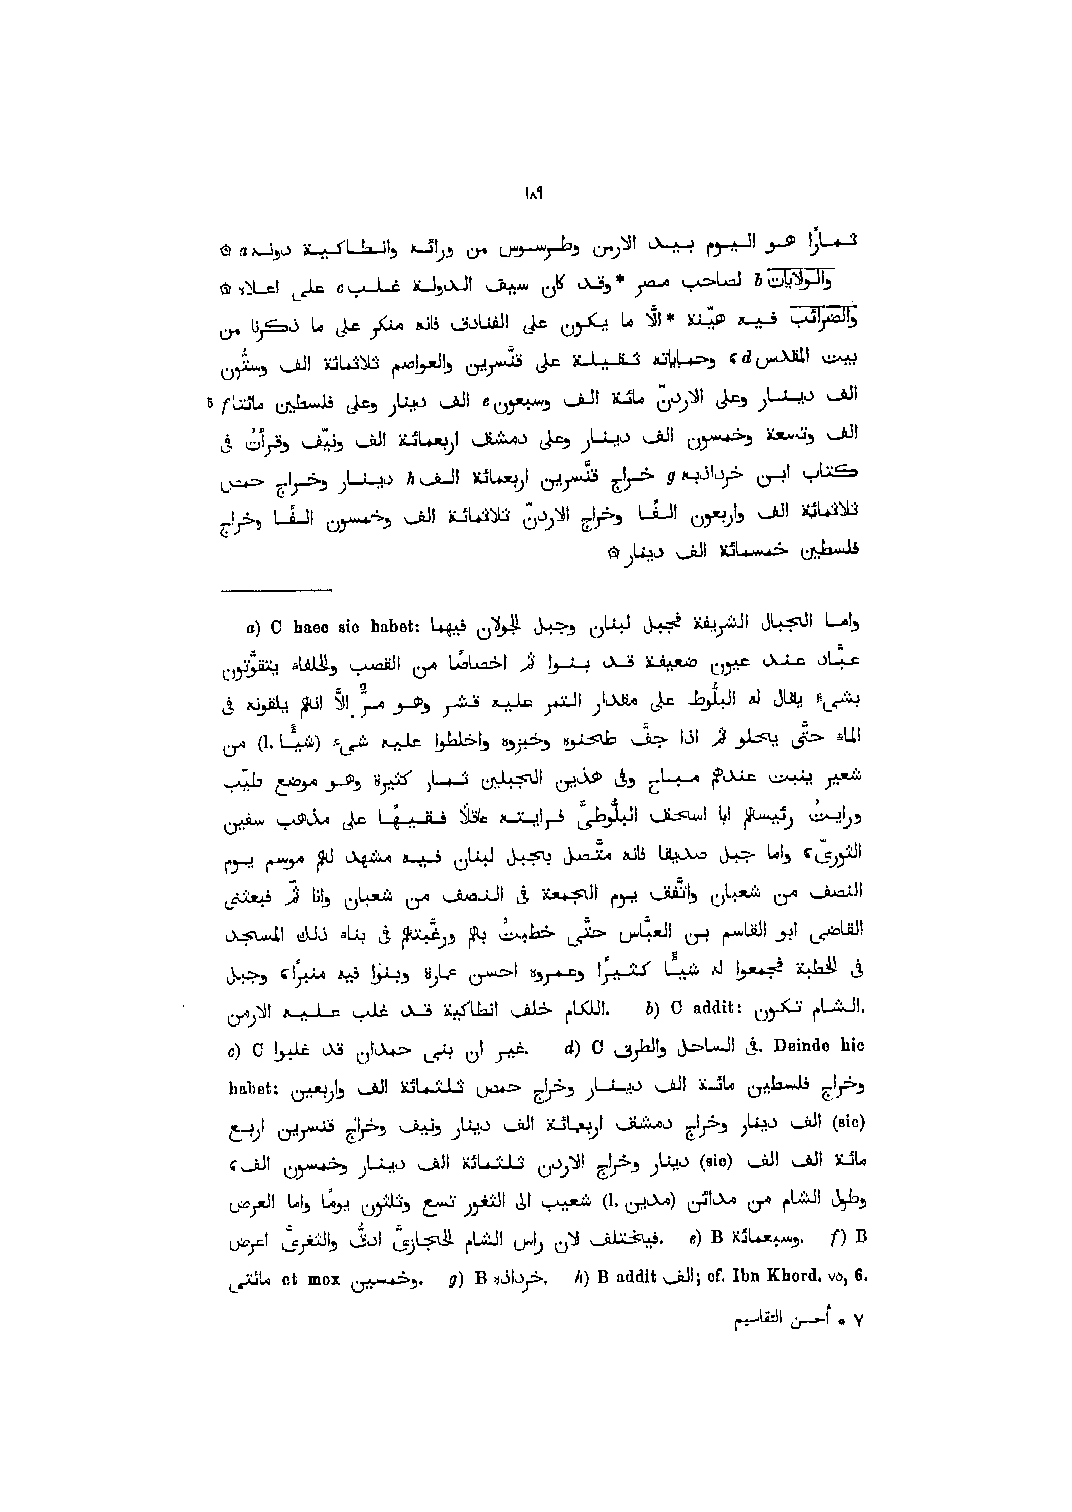 ١٨٩
ثمارًا هو اليوم بيد الارمن وطرسوس من ورائه وانطاكية دونه a ۞
والولايات b لصاحب مصر *وقد كان سيف الدولة غلب c على اعلاه ۞
والضرائب فيه هيّنة *الّا ما يكون على الفنادق فانه منكر على ما ذكرنا من
بيت المقدس d، وحماياته ثقيلة على قنّسرين والعواصم ثلاثمائة الف وستّون
الف دينار وعلى الاردنّ مائة الف وسبعون e الف دينار وعلى فلسطين مائتا f 5
الف وتسعة وخمسون الف دينار وعلى دمشق اربعمائة الف ونيّف وقرأتُ فى
كتاب ابن خرداذبه g خراج قنّسرين اربعمائة الف h دينار وخراج حمص
ثلاثمائة الف واربعون الفًا وخراج الاردنّ ثلاثمائة الف وخمسون الفًا وخراج
فلسطين خمسمائة الف دينار ۞
a) C haec sic habet: واما الجبال الشريفة فجبل لبنان وجبل الجولان فيهما
عبّاد عند عيون ضعيفة قد بنوا ثم اخصاصًا من القصب والحلفاء يتقوّتون
بشىء يقال له البلّوط على مقدار التمر عليه قشر وهو مرّ الاّ انهم يلقونه فى
الماء حتّى يحلو ثم اذا جفّ طحنوه وخبزوه واخلطوا عليه شىء (l. شيـًٔا) من
شعير ينبت عندهم مباح وفى هذين الجبلين ثمار كثيرة وهو موضع طيّب
ورايتُ رئيسهم ابا اسحق البلّوطىّ فرايته عاقلًا فقيهًا على مذهب سفين
الثورىّ، واما جبل صديقا فانه متّصل بجبل لبنان فيه مشهد لهم موسم يوم
النصف من شعبان واتّفق يوم الجمعة فى النصف من شعبان وانا ثَمّ فبعثنى
القاضى ابو القاسم بن العبّاس حتّى خطبتُ بهم ورغّبتهم فى بناء ذلك المسجد
فى الخطبة فجمعوا له شيـًٔا كثيرًا وعمروه احسن عمارة وبنوا فيه منبراً، وجبل
اللكام خلف انطاكية قد غلب عليه الارمن. b) C addit: الشام تكون.
c) C غير ان بنى حمدان قد غلبوا. d) C فى الساحل والطرق. Deinde hic
habet: وخراج فلسطين مائة الف دينار وخراج حمص ثلثمائة الف واربعين
(sic) الف دينار وخراج دمشق اربعمائة الف دينار ونيف وخراج قنسرين اربع
مائة الف الف (sic) دينار وخراج الاردن ثلثمائة الف دينار وخمسون الف،
وطول الشام من مدائن (l. مدين) شعيب الى الثغور تسع وثلثون يومًا واما العرض
فيختلف لان راس الشام الحجازىّ ادقّ والثغرىّ اعرض. e) B وسبعمائة. f) B
مائتى et mox وخمسين. g) B خرداذه. h) B addit الف; cf. Ibn Khord. ٧٥, 6.
٧ * أحسن التقاسيم